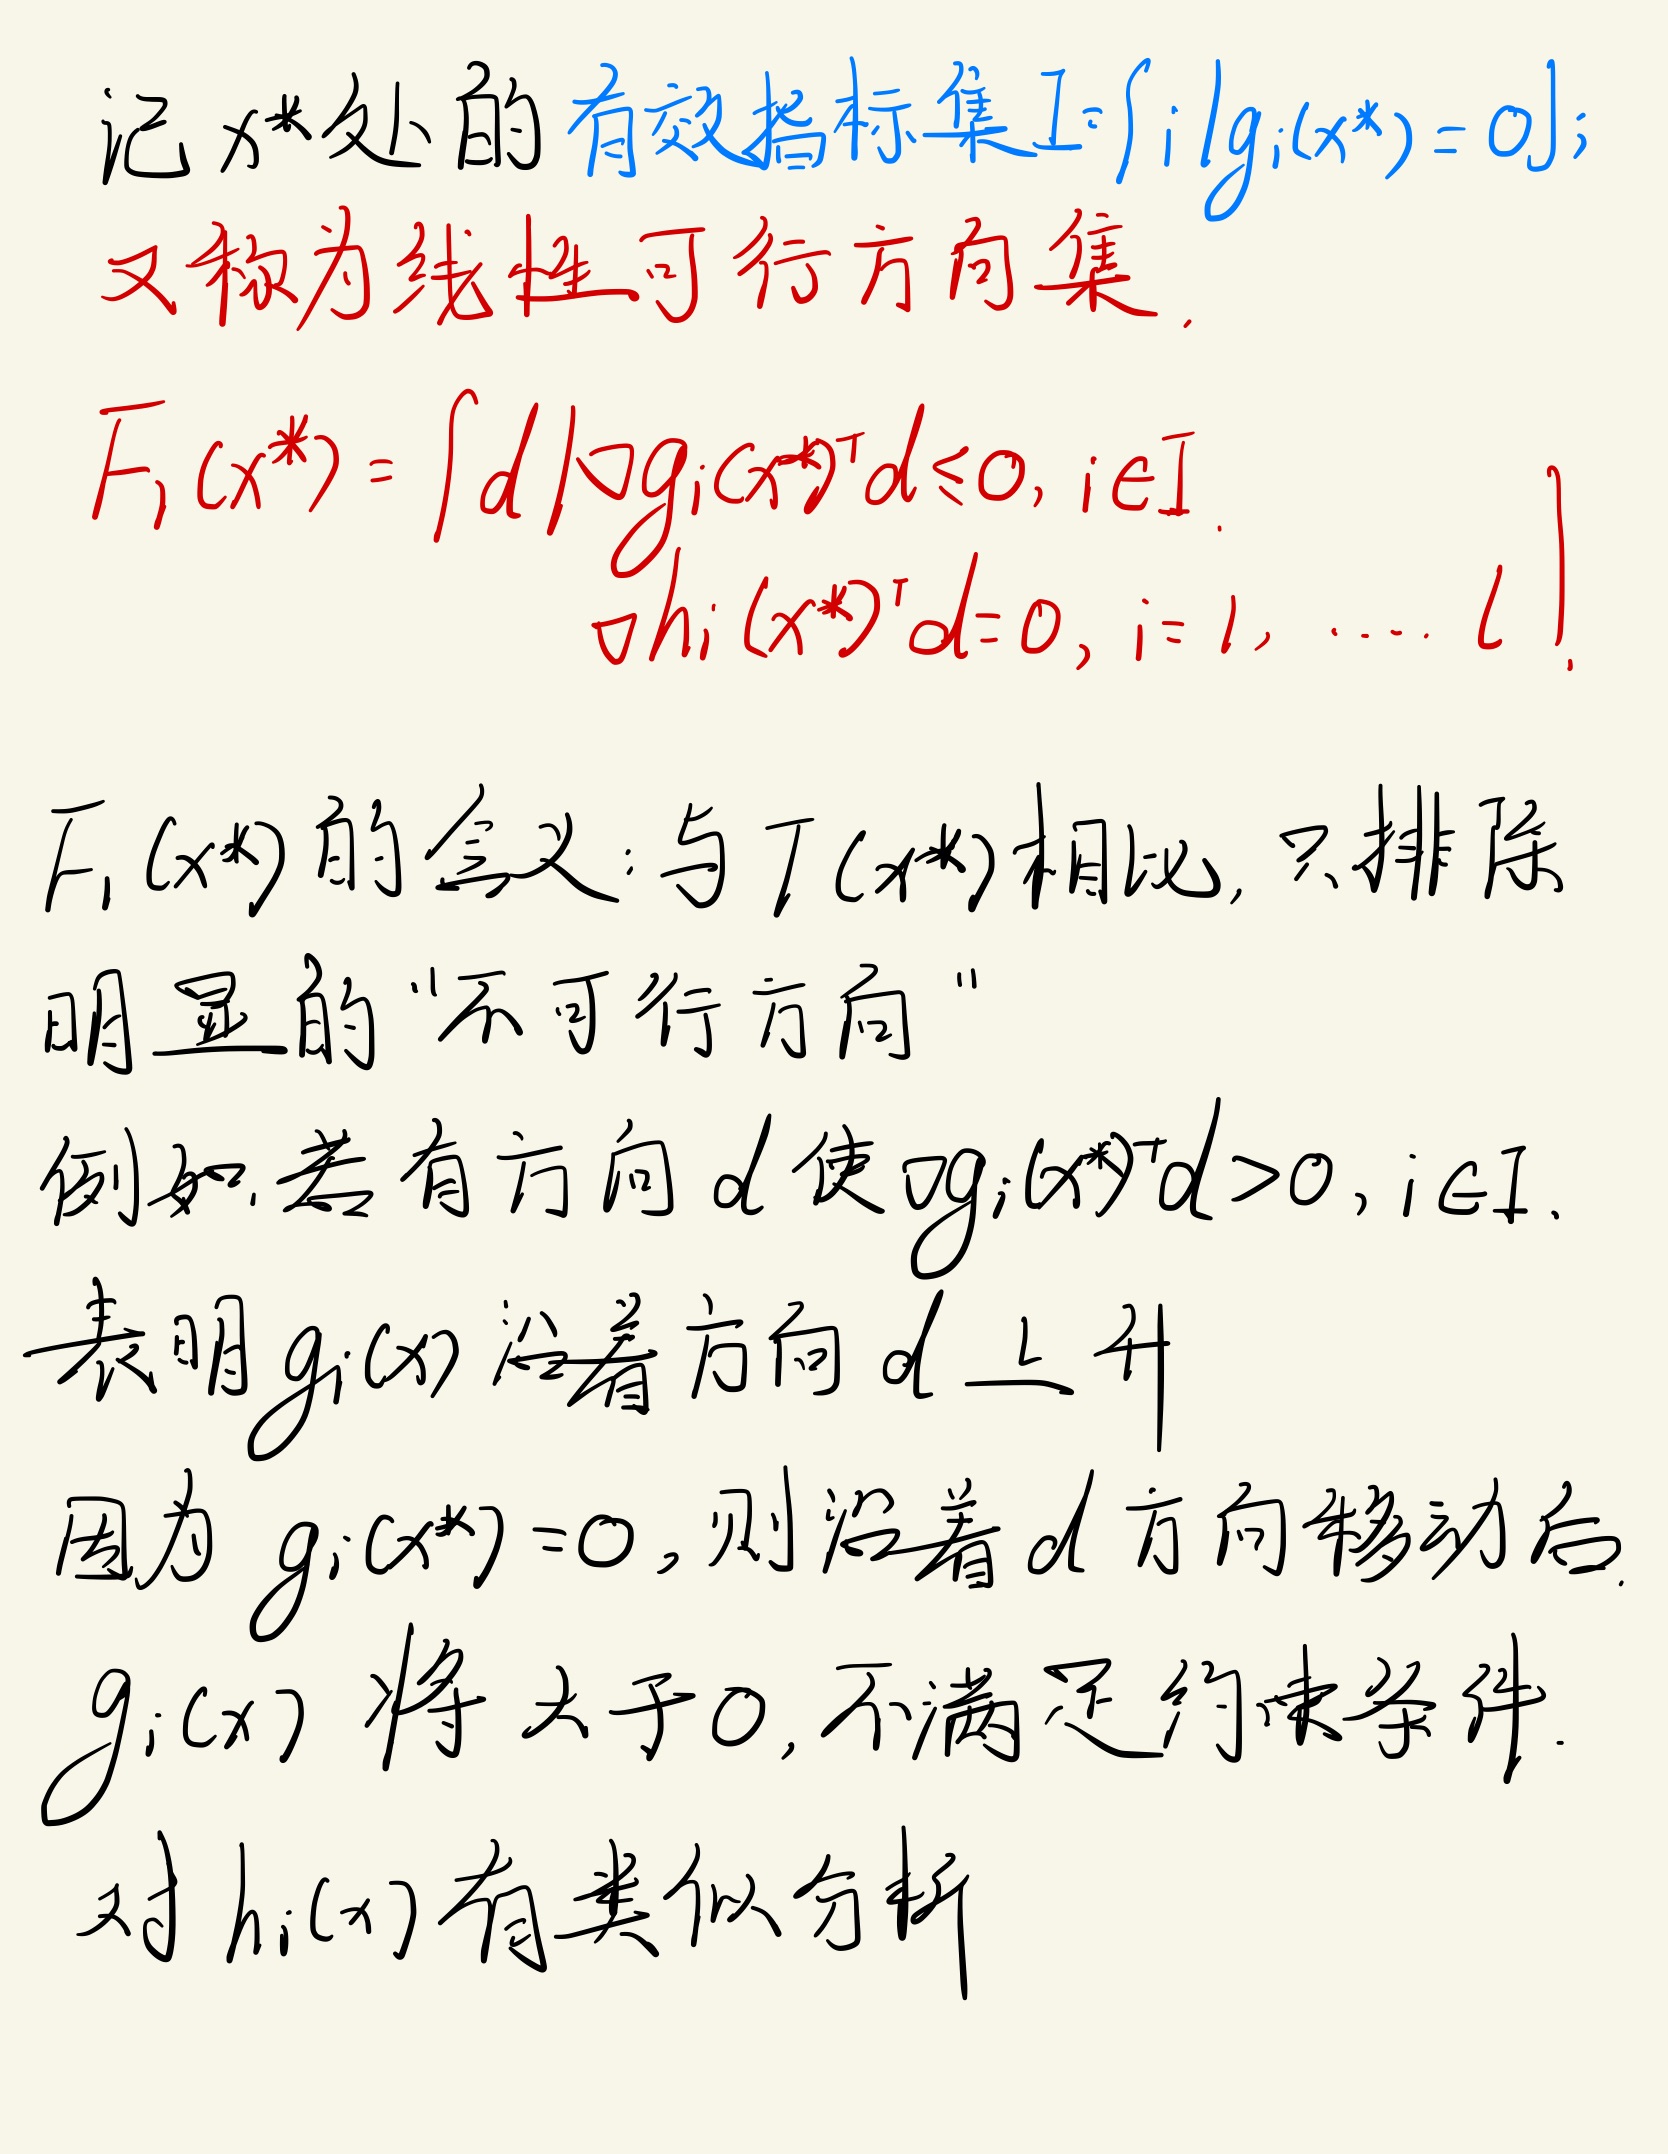 记 x*处的有效指标集I={i|gᵢ(x*)=0};
又称为线性可行方向集.
F₁(x*)={d|∇gᵢ(x*)ᵀd≤0, i∈I.
∇hᵢ(x*)ᵀd=0, i=1, ····· l}.
F₁(x*)的含义:与T(x*)相比,只排除
明显的"不可行方向"
例如.若有方向d使∇gᵢ(x*)ᵀd>0, i∈I.
表明gᵢ(x)沿着方向d上升
因为 gᵢ(x*)=0,则沿着d方向移动后.
gᵢ(x)将大于0,不满足约束条件.
对 hᵢ(x)有类似分析